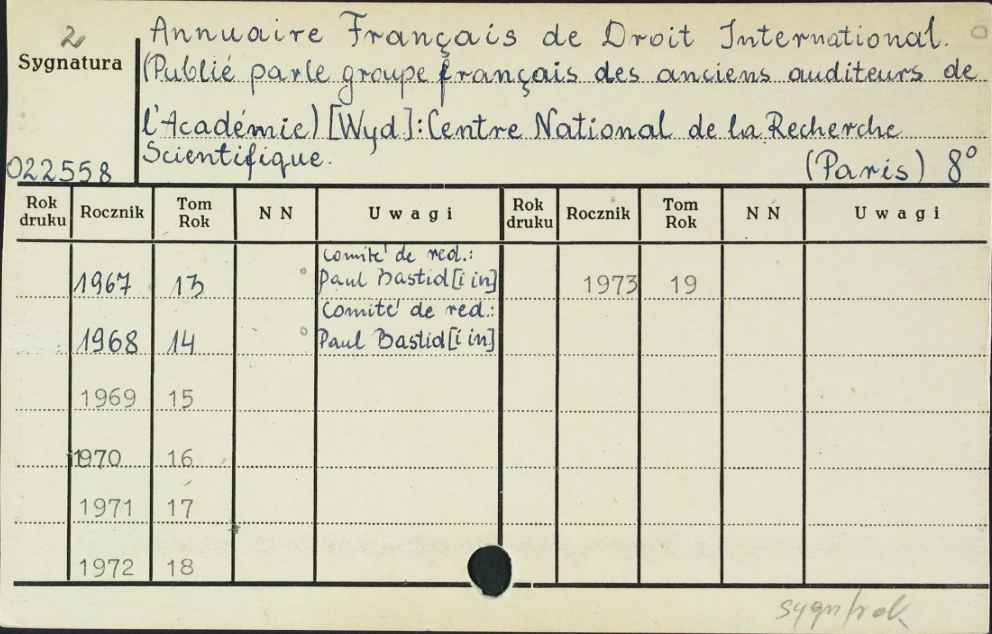 2
Annuaire Français de Droit International.
Sygnatura
(Publié par le groupe français des anciens auditeurs de
l'Académie) [Wyd]: Centre National de la Recherche
Scientifique. (Paris) 8°
022558
Rok druku Rocznik Tom Rok N N Uwagi Rok druku Rocznik Tom Rok N N Uwagi
Comité de red.:
1967 13 Paul Bastid [i in] 1973 19
Comité de red.:
1968 14 Paul Bastid [i in]
1969 15
1970 16
1971 17
1972 18